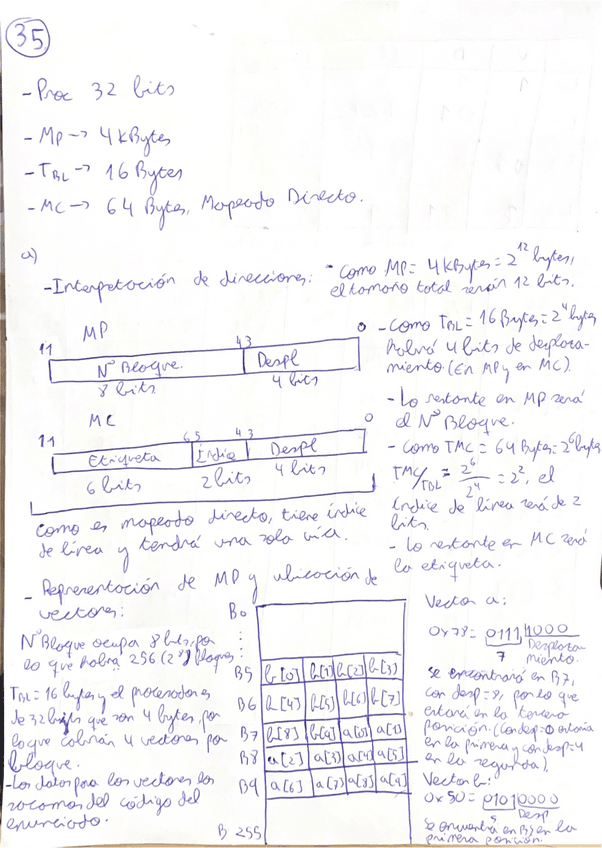 35
- Proc 32 bits
- MP → 4 kBytes
- TBL → 16 Bytes
- MC → 64 Bytes, Mapeado Directo.
a)
- Interpretación de direcciones:
- Como MP = 4 kBytes = 2^12 bytes,
el tamaño total serán 12 bits.
MP
11 43 0
Nº Bloque. Despl
8 bits 4 bits
MC
11 65 43 0
Etiqueta Índice Despl
6 bits 2 bits 4 bits
Como es mapeado directo, tiene índice
de línea y tendrá una sola vía.
- Como TBL = 16 Bytes = 2^4 bytes
habrá 4 bits de desplaza-
miento. (En MP y en MC).
- Lo restante en MP será
el Nº Bloque.
- Como TMC = 64 Bytes = 2^6 bytes
TMC/TBL = 2^6/2^4 = 2^2, el
índice de línea será de 2
bits.
- Lo restante en MC será
la etiqueta.
- Representación de MP y ubicación de
vectores:
Nº Bloque ocupa 8 bits, por
lo que habrá 256 (2^8) bloques.
TBL = 16 bytes y el procesador es
de 32 bits que son 4 bytes, por
lo que cabrán 4 vectores por
bloque.
- Los datos para los vectores los
sacamos del código del
enunciado.
B0
⋮
B5 b[0] b[1] b[2] b[3]
B6 b[4] b[5] b[6] b[7]
B7 b[8] b[9] a[0] a[1]
B8 a[2] a[3] a[4] a[5]
B9 a[6] a[7] a[8] a[9]
B 255
Vector a:
0x78 = 0111 1000
7 Desplaza-
miento.
Se encontrará en B7,
con desp = 8, por lo que
estará en la tercera
posición. (Con desp = 0 estaría
en la primera y con desp = 4
en la segunda).
Vector b:
0x50 = 0101 0000
5 Desp
Se encuentra en B5 en la
primera posición.